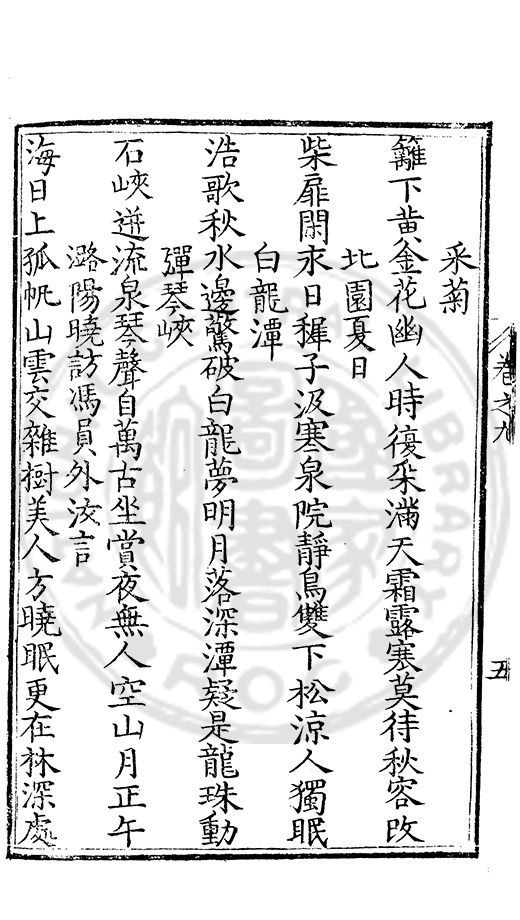 卷之九
五
采菊
籬下黃金花幽人時復采滿天霜露寒莫待秋容改
北園夏日
柴扉閑永日穉子汲寒泉院靜鳥雙下松涼人獨眠
白龍潭
浩歌秋水邊驚破白龍夢明月落深潭疑是龍珠動
彈琴峽
石峽迸流泉琴聲自萬古坐賞夜無人空山月正午
潞陽曉訪馮員外汝言
海日上孤帆山雲交雜樹美人方曉眠更在林深處